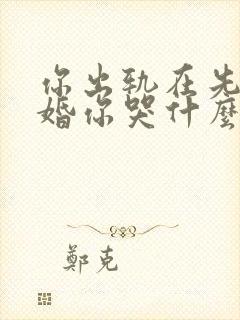 你出轨在先
婚你哭什麼
鄭克